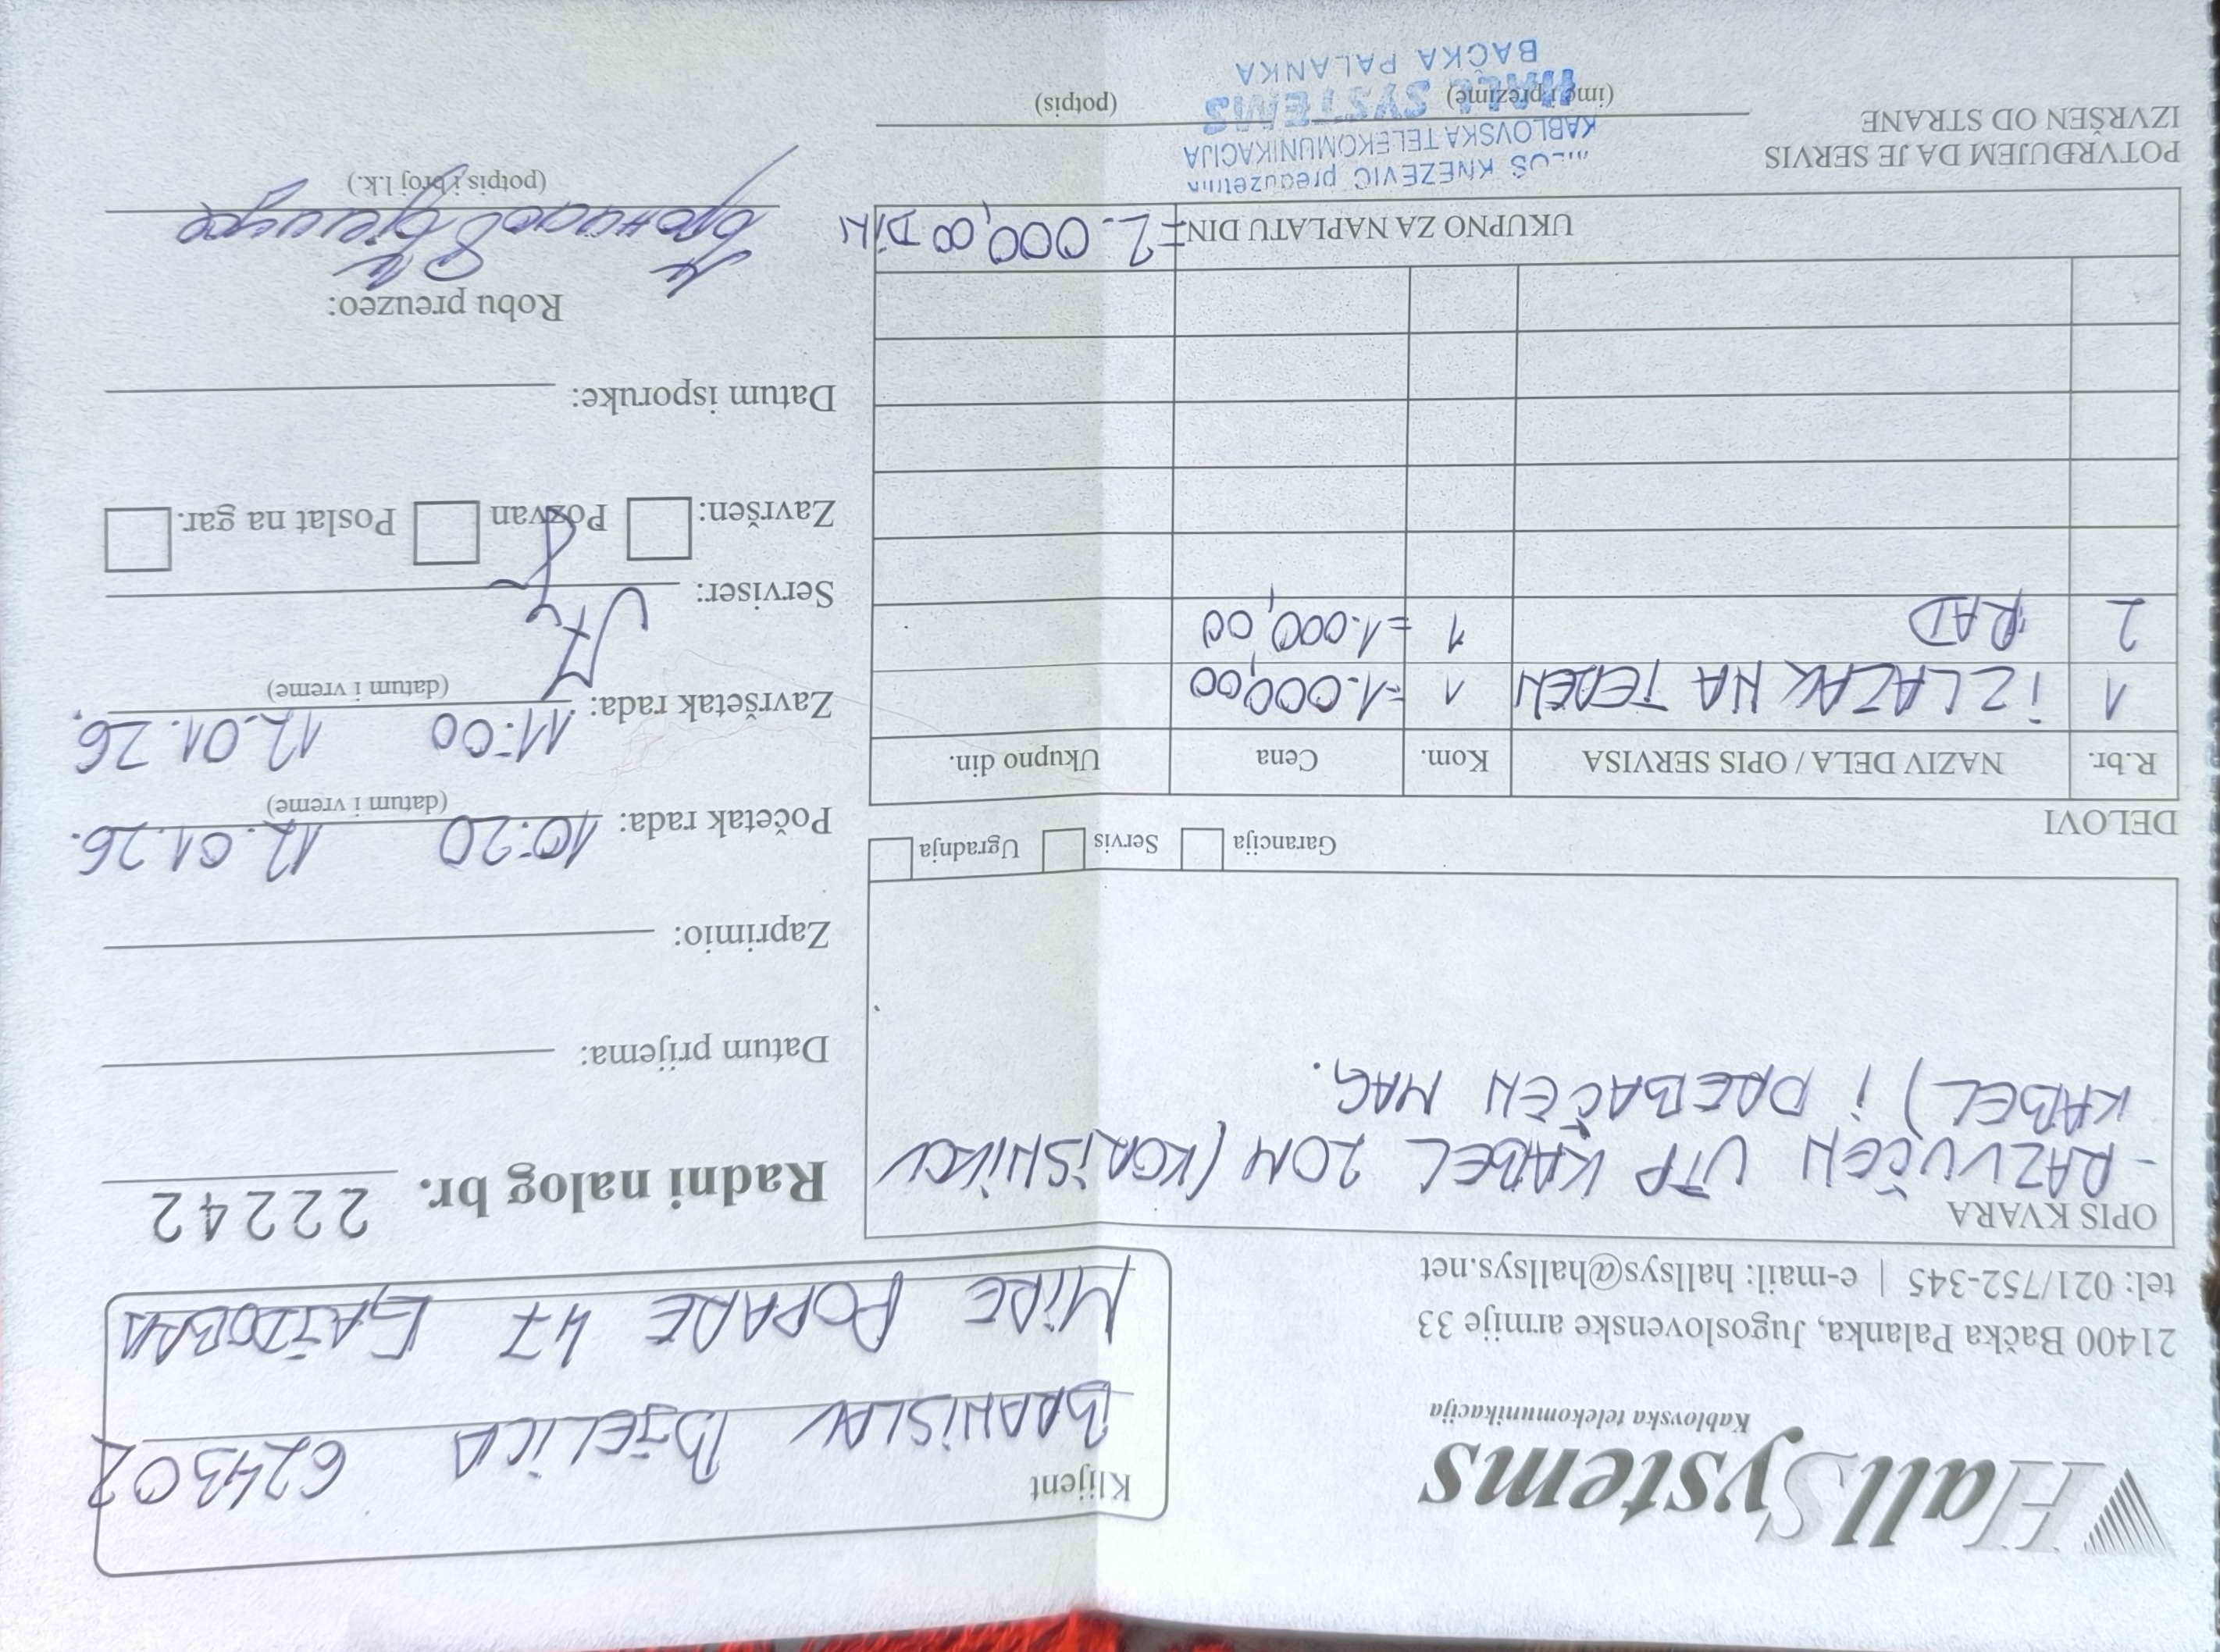 HallSystems
Kablovska telekomunikacija
21400 Bačka Palanka, Jugoslovenske armije 33
tel: 021/752-345 | e-mail: hallsys@hallsys.net
Klijent
BRANISLAV BJELICA 624302
MIRE POPARE 47 GAJDOBRA
Radni nalog br. 22242
OPIS KVARA
- RAZVUČEN UTP KABEL 20M (KORISNIKOV
KABEL) I PREBAČEN MAG.
Garancija Servis Ugradnja
DELOVI
R.br. NAZIV DELA / OPIS SERVISA Kom. Cena Ukupno din.
1 IZLAZAK NA TEREN 1 =1.000,00
2 RAD 1 =1.000,00
UKUPNO ZA NAPLATU DIN =2.000,00 DIN
POTVRĐUJEM DA JE SERVIS
IZVRŠEN OD STRANE
(ime i prezime) (potpis)
KNEŽEVIĆ preduzetnik
KABLOVSKA TELEKOMUNIKACIJA
HALL SYSTEMS
BAČKA PALANKA
Datum prijema:
Zaprimio:
Početak rada: 10:20 12.01.26.
(datum i vreme)
Završetak rada: 11:00 12.01.26.
(datum i vreme)
Serviser:
Završen: Pozvan Poslat na gar.
Datum isporuke:
Robu preuzeo:
(potpis i broj l.k.)